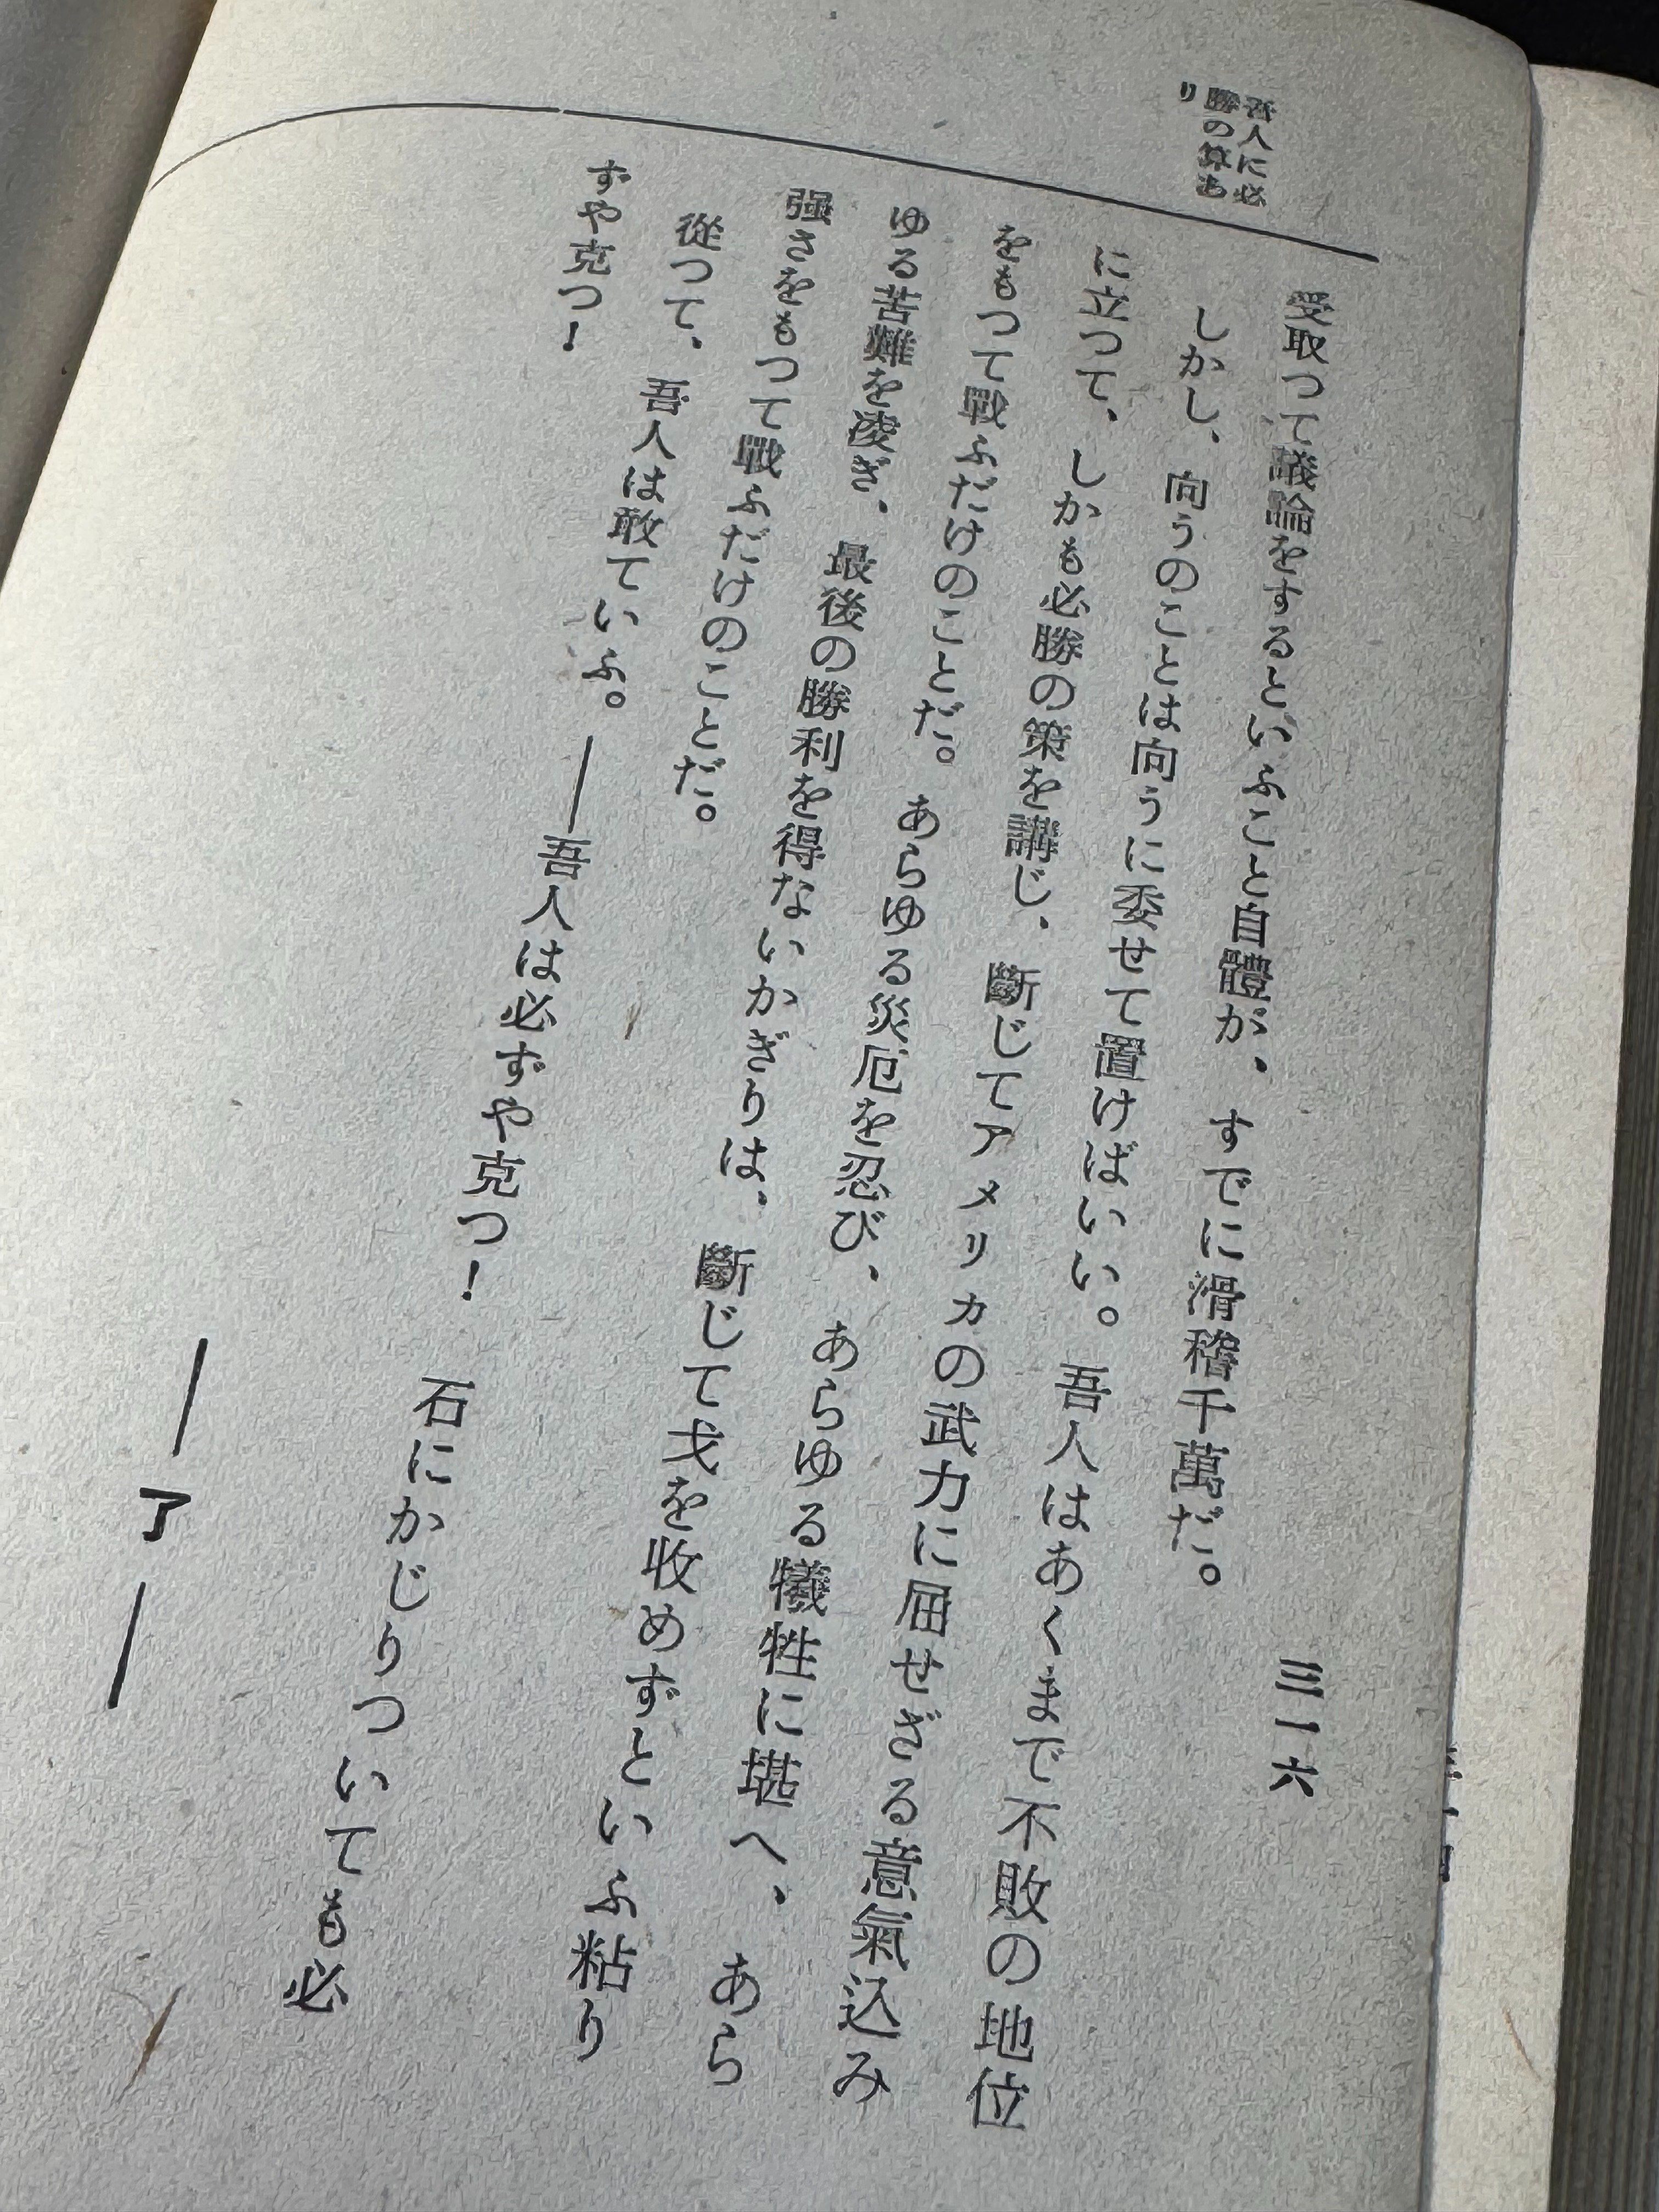 吾人に必
勝の算あ
り
三一六
受取つて議論をするといふこと自體が、すでに滑稽千萬だ。
しかし、向うのことは向うに委せて置けばいい。吾人はあくまで不敗の地位
に立つて、しかも必勝の策を講じ、斷じてアメリカの武力に屈せざる意氣込み
をもつて戰ふだけのことだ。あらゆる災厄を忍び、あらゆる犧牲に堪へ、あら
ゆる苦難を凌ぎ、最後の勝利を得ないかぎりは、斷じて戈を收めずといふ粘り
强さをもつて戰ふだけのことだ。
從つて、吾人は敢ていふ。――吾人は必ずや克つ！ 石にかじりついても必
ずや克つ！
――了――